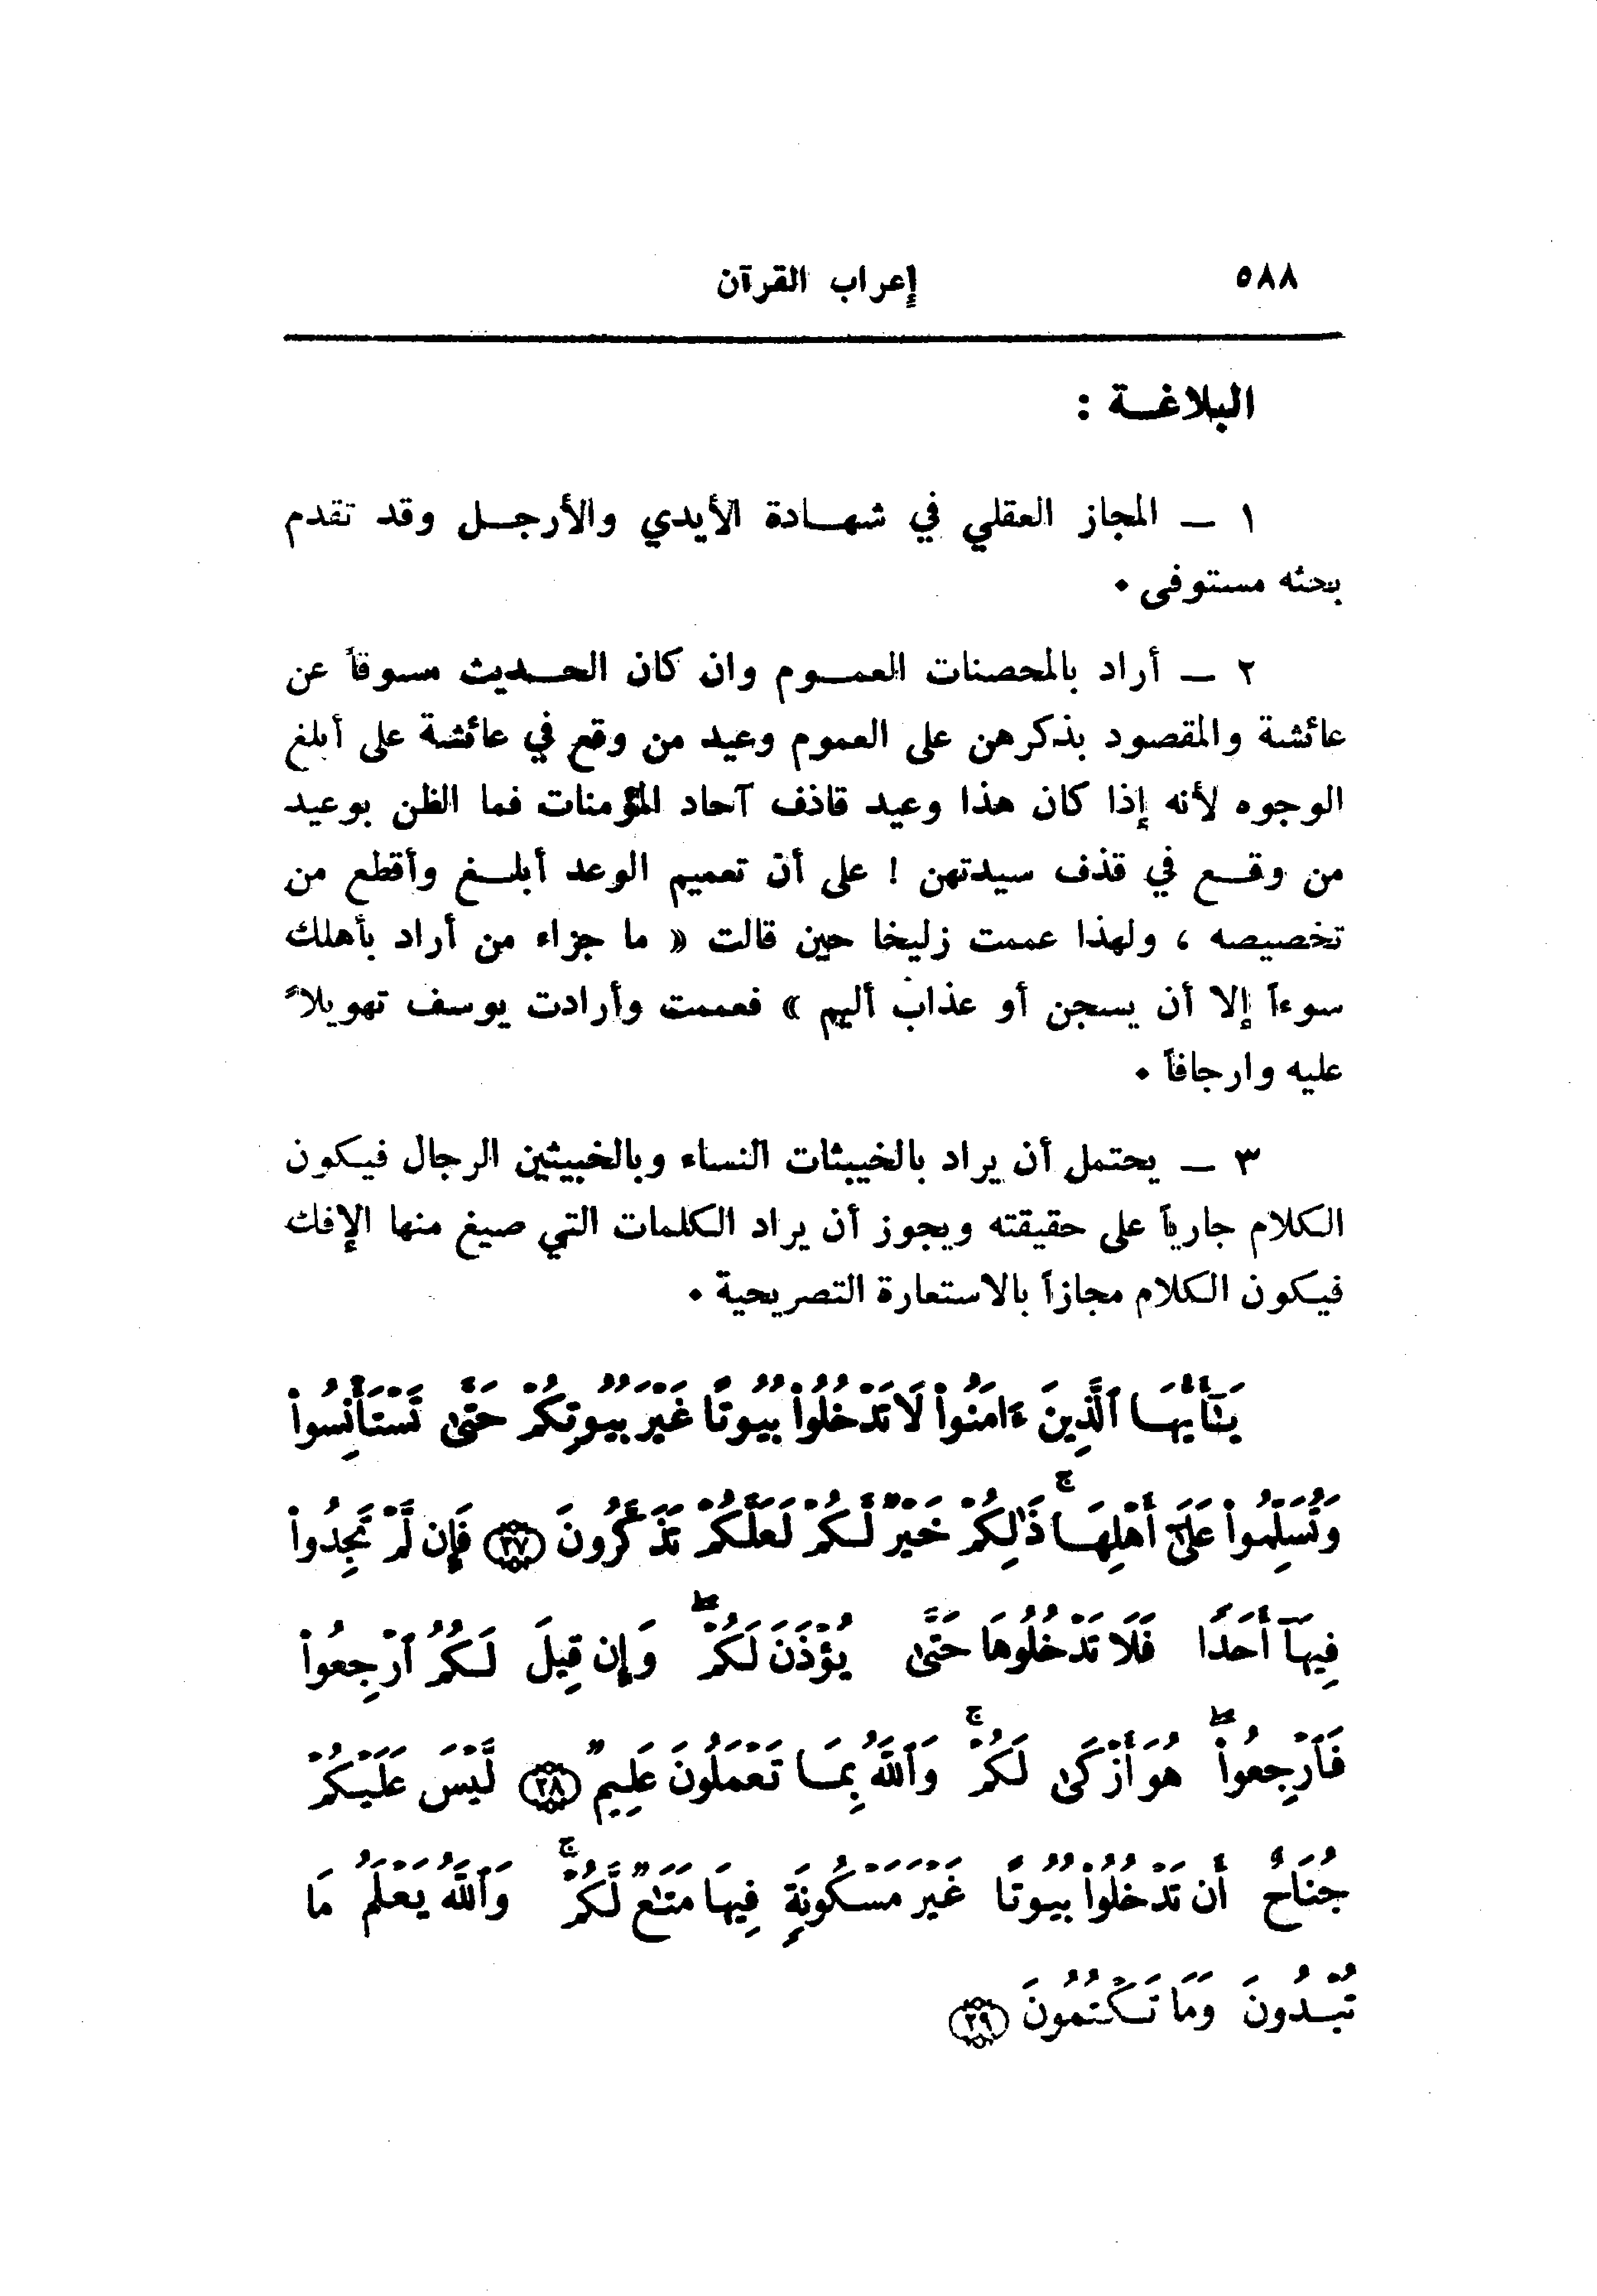 ٥٨٨ إعراب القرآن
البلاغـة :
١ ـ المجاز العقلي في شهـادة الأيدي والأرجـل وقد تقدم
بحثه مستوفى ٠
٢ ـ أراد بالمحصنات العمـوم وان كان الحـديث مسوقاً عن
عائشة والمقصود بذكرهن على العموم وعيد من وقع في عائشة على أبلغ
الوجوه لأنه إذا كان هذا وعيد قاذف آحاد المؤمنات فما الظن بوعيد
من وقـع في قذف سيدتهن ! على أن تعميم الوعد أبلـغ وأقطع من
تخصيصه ، ولهذا عممت زليخا حين قالت « ما جزاء من أراد بأهلك
سوءاً إلا أن يسجن أو عذاب أليم » فعممت وأرادت يوسف تهويلاً
عليه وارجافاً ٠
٣ ـ يحتمل أن يراد بالخبيثات النساء وبالخبيثين الرجال فيكون
الكلام جارياً على حقيقته ويجوز أن يراد الكلمات التي صيغ منها الإفك
فيكون الكلام مجازاً بالاستعارة التصريحية ٠
يَـٰٓأَيُّهَا ٱلَّذِينَ ءَامَنُوا۟ لَا تَدْخُلُوا۟ بُيُوتًا غَيْرَ بُيُوتِكُمْ حَتَّىٰ تَسْتَأْنِسُوا۟
وَتُسَلِّمُوا۟ عَلَىٰٓ أَهْلِهَا ۚ ذَٰلِكُمْ خَيْرٌ لَّكُمْ لَعَلَّكُمْ تَذَكَّرُونَ ﴿٢٧﴾ فَإِن لَّمْ تَجِدُوا۟
فِيهَآ أَحَدًا فَلَا تَدْخُلُوهَا حَتَّىٰ يُؤْذَنَ لَكُمْ ۖ وَإِن قِيلَ لَكُمُ ٱرْجِعُوا۟
فَٱرْجِعُوا۟ ۖ هُوَ أَزْكَىٰ لَكُمْ ۚ وَٱللَّهُ بِمَا تَعْمَلُونَ عَلِيمٌ ﴿٢٨﴾ لَّيْسَ عَلَيْكُمْ
جُنَاحٌ أَن تَدْخُلُوا۟ بُيُوتًا غَيْرَ مَسْكُونَةٍ فِيهَا مَتَـٰعٌ لَّكُمْ ۚ وَٱللَّهُ يَعْلَمُ مَا
تُبْدُونَ وَمَا تَكْتُمُونَ ﴿٢٩﴾